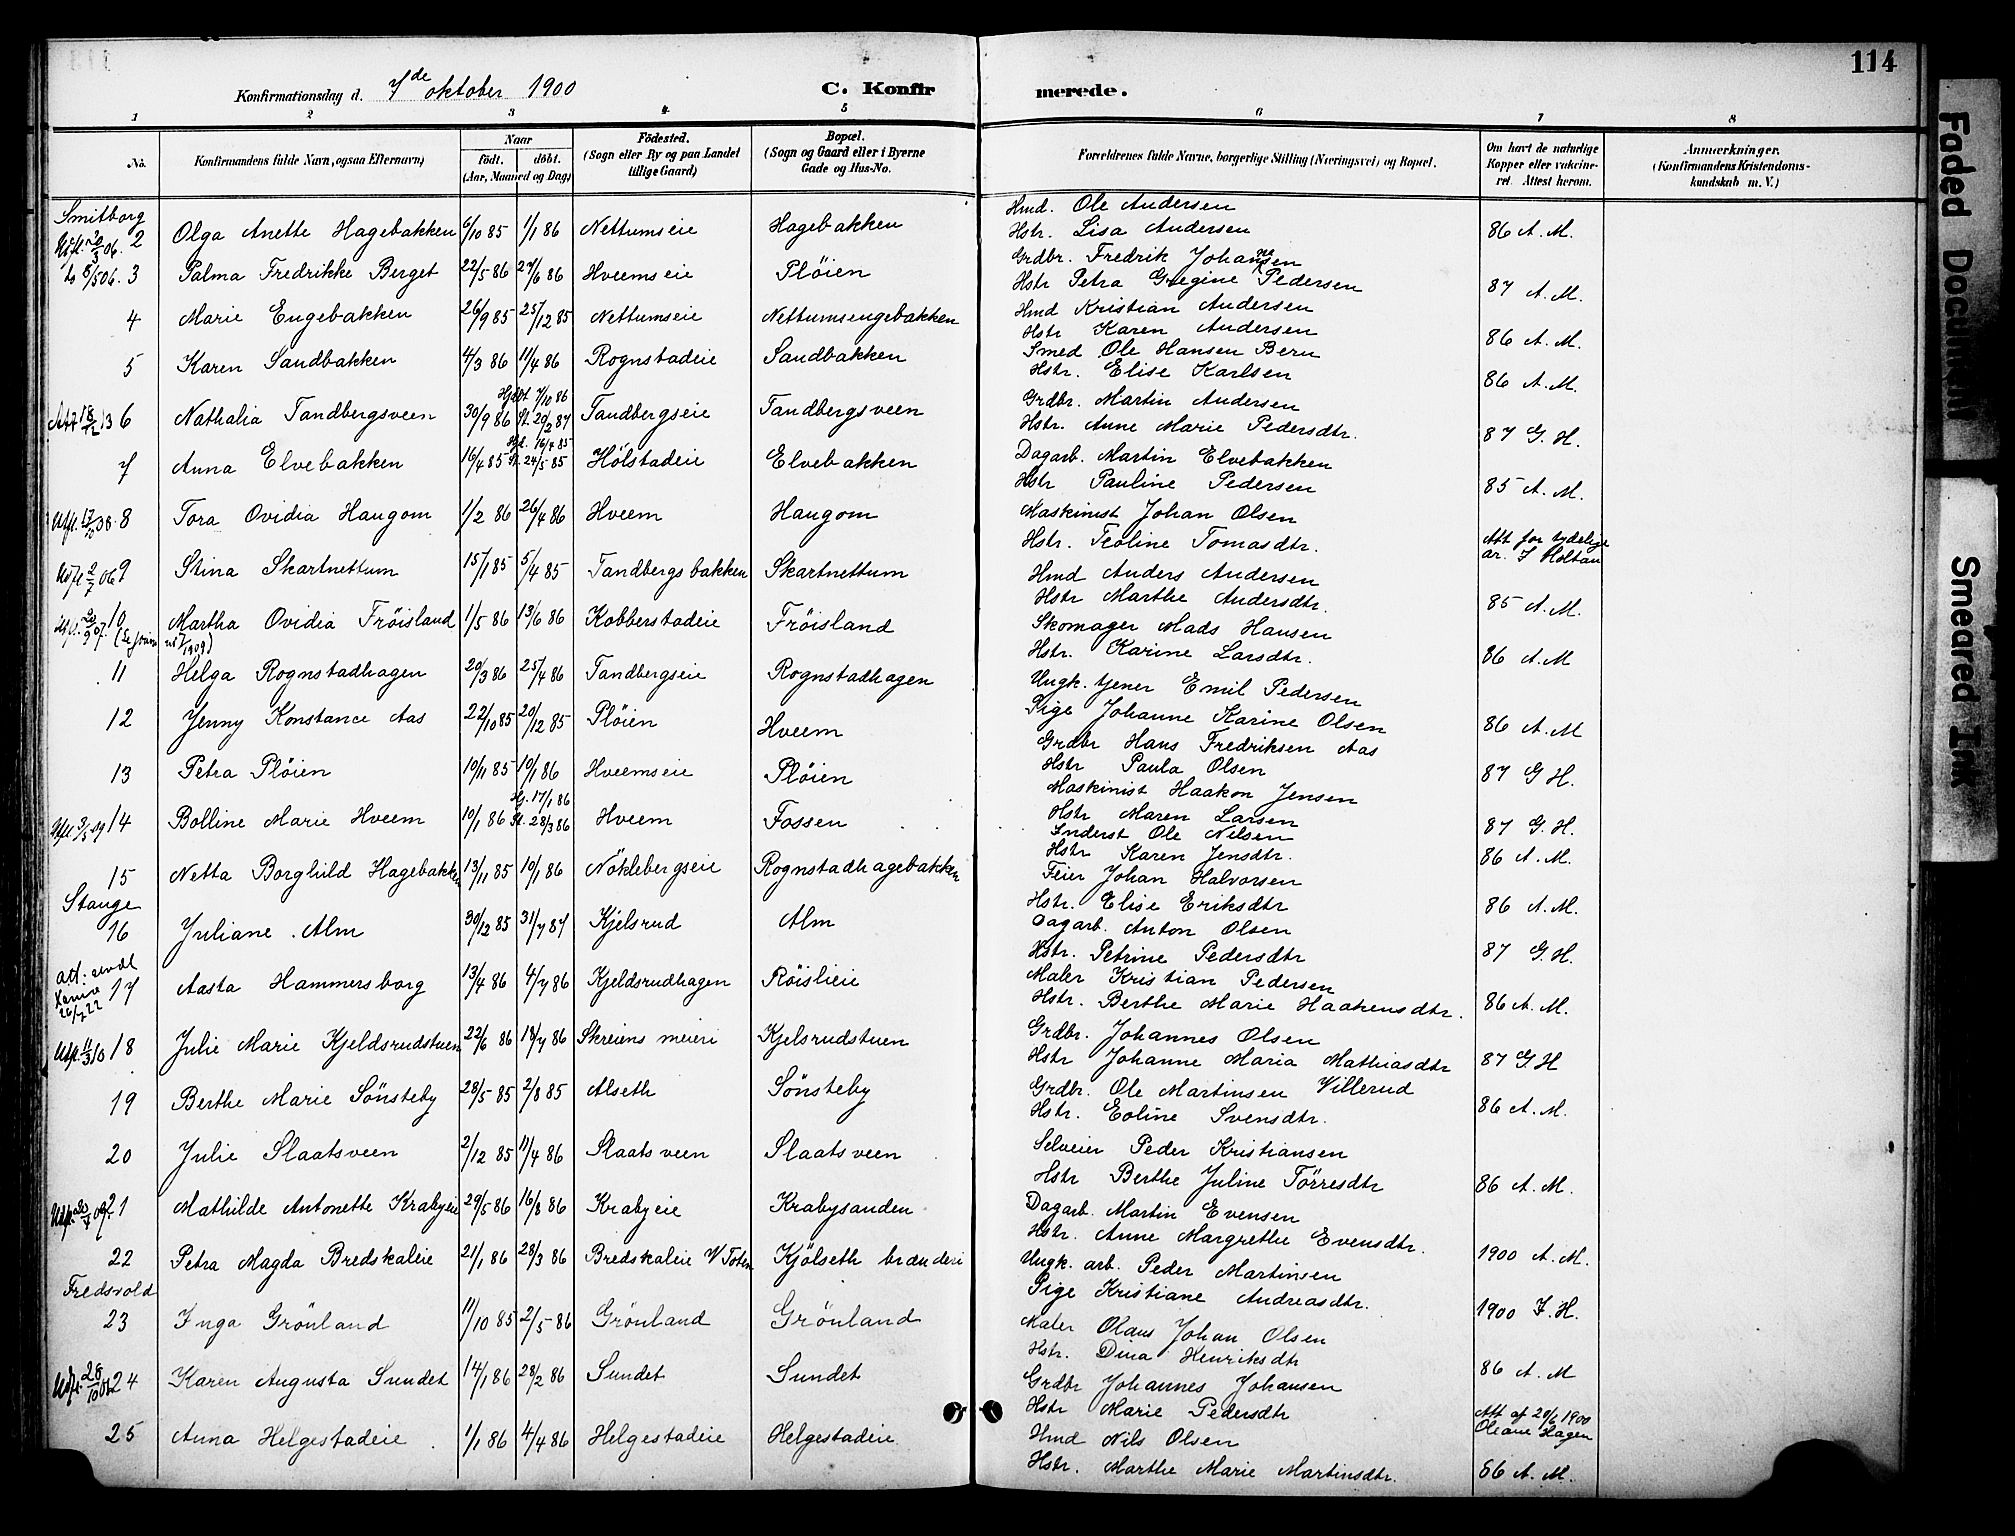 114
Konfirmationsdag d. 7de oktober 1900
C. Konfirmerede.
1 2 3 4 5 6 7 8
No.
Konfirmandens fulde Navn, ogsaa Efternavn)
Naar
födt. döbt.
(Aar, Maaned og Dag)
Födested.
(Sogn eller By og paa Landet
tillige Gaard)
Bopæl.
(Sogn og Gaard eller i Byerne
Gade og Hus-No.
Forældrenes fulde Navne, borgerlige Stilling (Næringsvei) og Bopæl.
Om havt de naturlige
Kopper eller vakcine-
ret. Attest herom.
Anmærkninger.
(Konfirmandens Kristendoms-
kundskab m. V.)
Smitborg
2 Olga Anette Hagebakken 6/10 85 1/1 86 Nettumseie Hagebakken Hmd. Ole Andersen
Hstr. Lisa Andersen 86 A. M.
3 Palma Fredrikke Berget 22/5 86 27/6 86 Hveemseie Plöien Grdbr. Fredrik Johansen
Hstr Petra Gregine Pedersen 87 A. M.
4 Marie Engebakken 26/9 85 25/12 85 Nettumseie Nettumsengebakken Hmd Kristian Andersen
Hstr Karen Andersen 86 A. M.
5 Karen Sandbakken 4/3 86 11/4 86 Rognstadeie Sandbakken Smed Ole Hansen Bern
Hstr. Elise Karlsen 86 A. M.
6 Nathalia Tandbergsveen 30/9 86 Hjdbt. 7/10 86 St. 20/2 87 Tandbergseie Tandbergsveen Grdbr. Martin Andersen
Hstr. Anne Marie Pedersdtr. 87 G. H.
7 Anna Elvebakken 16/4 85 Hjd. 16/4 85 St. 24/5 85 Hölstadeie Elvebakken Dagarb. Martin Elvebakken
Hstr Pauline Pedersen 85 A. M.
8 Tora Ovidia Haugom 1/2 86 26/4 86 Hveem Haugom Maskinist Johan Olsen
Hstr. Teoline Tomasdtr. Att for tydelige
ar. J Holtan
9 Stina Skartnettum 15/1 85 5/4 85 Tandbergsbakken Skartnettum Hmd Anders Andersen
Hstr Marthe Andersdtr. 85 A. M.
10 Martha Ovidia Fröisland 1/5 86 13/6 86 Kobberstadeie Fröisland Skomager Mads Hansen
Hstr. Karine Larsdtr. 86 A. M
11 Helga Rognstadhagen 20/3 86 25/4 86 Tandbergseie Rognstadhagen Ungk. tjener Emil Pedersen
Pige Johanne Karine Olsen 86 A. M
12 Jenny Konstance Aas 22/10 85 20/12 85 Plöien Hveem Grdbr Hans Fredriksen Aas
Hstr Paula Olsen 87 G H.
13 Petra Plöien 10/11 85 10/1 86 Hveemseie Plöien Maskinist Haakon Jensen
Hstr Maren Larsen 87 G. H.
14 Bolline Marie Hveem 10/1 86 Hj. 17/1 86 St. 28/3 86 Hveem Fossen Inderst Ole Nilsen
Hstr Karen Jensdtr. 86 A. M.
15 Netta Borghild Hagebakken 13/11 85 10/1 86 Nöklebergseie Rognstadhagebakken Feier Johan Halvorsen
Hstr. Elise Eriksdtr 86 A. M.
Stange
16 Juliane Alm 30/12 85 31/7 87 Kjelsrud Alm Dagarb. Anton Olsen
Hstr. Petrine Pedersdtr 87 G. H.
17 Aasta Hammersborg 13/4 86 4/7 86 Kjeldsrudhagen Röislieie Maler Kristian Pedersen
Hstr. Berthe Marie Haakensdtr. 86 A. M.
18 Julie Marie Kjeldsrudstuen 22/6 86 18/7 86 Skreiens meieri Kjelsrudstuen Grdbr. Johannes Olsen
Hstr Johanne Maria Mathiasdtr 87 G H
19 Berthe Marie Sönsteby 28/5 85 2/8 85 Alseth Sönsteby Grdbr. Ole Martinsen Villerud
Hstr. Eoline Svensdtr. 86 A. M.
20 Julie Slaatsveen 2/12 85 11/4 86 Slaatsveen Slaatsveen Selveier Peder Kristiansen
Hstr Berthe Juline Törresdtr 86 A. M.
21 Mathilde Antonette Krabyeie 29/5 86 16/8 86 Krabyeie Krabysanden Dagarb. Martin Evensen
Hstr. Anne Margrethe Evensdtr. 1900 A. M.
22 Petra Magda Bredskaleie 21/1 86 28/3 86 Bredskaleie V Toten Kjölseth brænderi Ungk. arb. Peder Martinsen
Pige Kristiane Andreasdtr. 1900 J. H.
Fredsvold
23 Inga Grönland 11/10 85 2/5 86 Grönland Grönland Maler Olaus Johan Olsen
Hstr. Dina Henriksdtr 86 A. M
24 Karen Augusta Sundet 14/1 86 28/2 86 Sundet Sundet Grdbr Johannes Johansen
Hstr Marie Pedersdtr Att af 20/6 1900
Oleane Hagen
25 Anna Helgestadeie 1/1 86 4/4 86 Helgestadeie Helgestadeie Hmd Nils Olsen
Hstr. Marthe Marie Martinsdtr. 86 A. M.
Faded Document
Smeared Ink